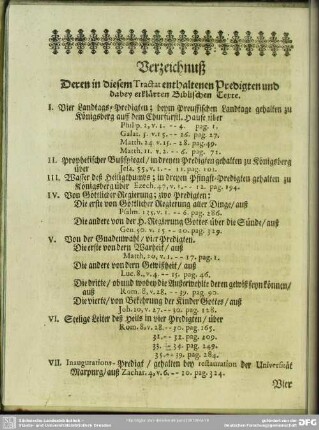 Verzeichnuß
Deren in diesem Tractat enthaltenen Predigten und
dabey erklärten Biblischen Texte.
I. Vier Landtags-Predigten; beym Preussischen Landtage gehalten zu
Königsberg auff dem Churfürstl. Hause über
Philip. 1, v. 1. -- 4. pag. 1.
Galat. 5. v. 15. -- 26. pag. 27.
Matth. 24. v. 15. -- 28. pag. 49.
Matth. 11. v. 2. -- 6. pag. 71.
II. Prophetischer Bußspiegel/ in denen Predigten gehalten zu Königsberg
über Jesa. 55, v. 1. -- 11. pag. 101.
III. Wasser des Heiligthumbs; in dreyen Pfingst-Predigten gehalten zu
Königsberg über Ezech. 47, v. 1. -- 12. pag. 194.
IV. Von Göttlicher Regierung; zwo Predigten:
Die erste von Göttlicher Regierung aller Dinge/ auß
Psalm. 135, v. 1. -- 6. pag. 286.
Die andere von der H. Regierung Gottes über die Sünde/ auß
Gen. 50. v. 15. -- 20. pag. 329.
V. Von der Gnadenwahl/ vier Predigten.
Die erste von dern Warheit/ auß
Matth. 20, v. 1. -- 17. pag. 1.
Die andere von dern Gewißheit/ auß
Luc. 8, v. 4. -- 15. pag. 46.
Die dritte/ ob und wobey die Außerwehlte deren gewiß seyn können/
auß Rom. 8, v. 28. -- 39. pag. 90.
Die vierte/ von Bekehrung der Kinder Gottes/ auß
Joh. 10, v. 27. -- 30. pag. 128.
VI. Seelige Leiter des Heils in vier Predigten/ über
Rom. 8, v. 28. -- 30. pag. 165.
31. -- 32. pag. 209.
33. -- 34. pag. 249.
35. -- 39. pag. 284.
VII. Inaugurations-Predigt/ gehalten bey restauration der Universität
Marpurg/ auß Zachar. 4, v. 6. -- 10. pag. 324.
Vier